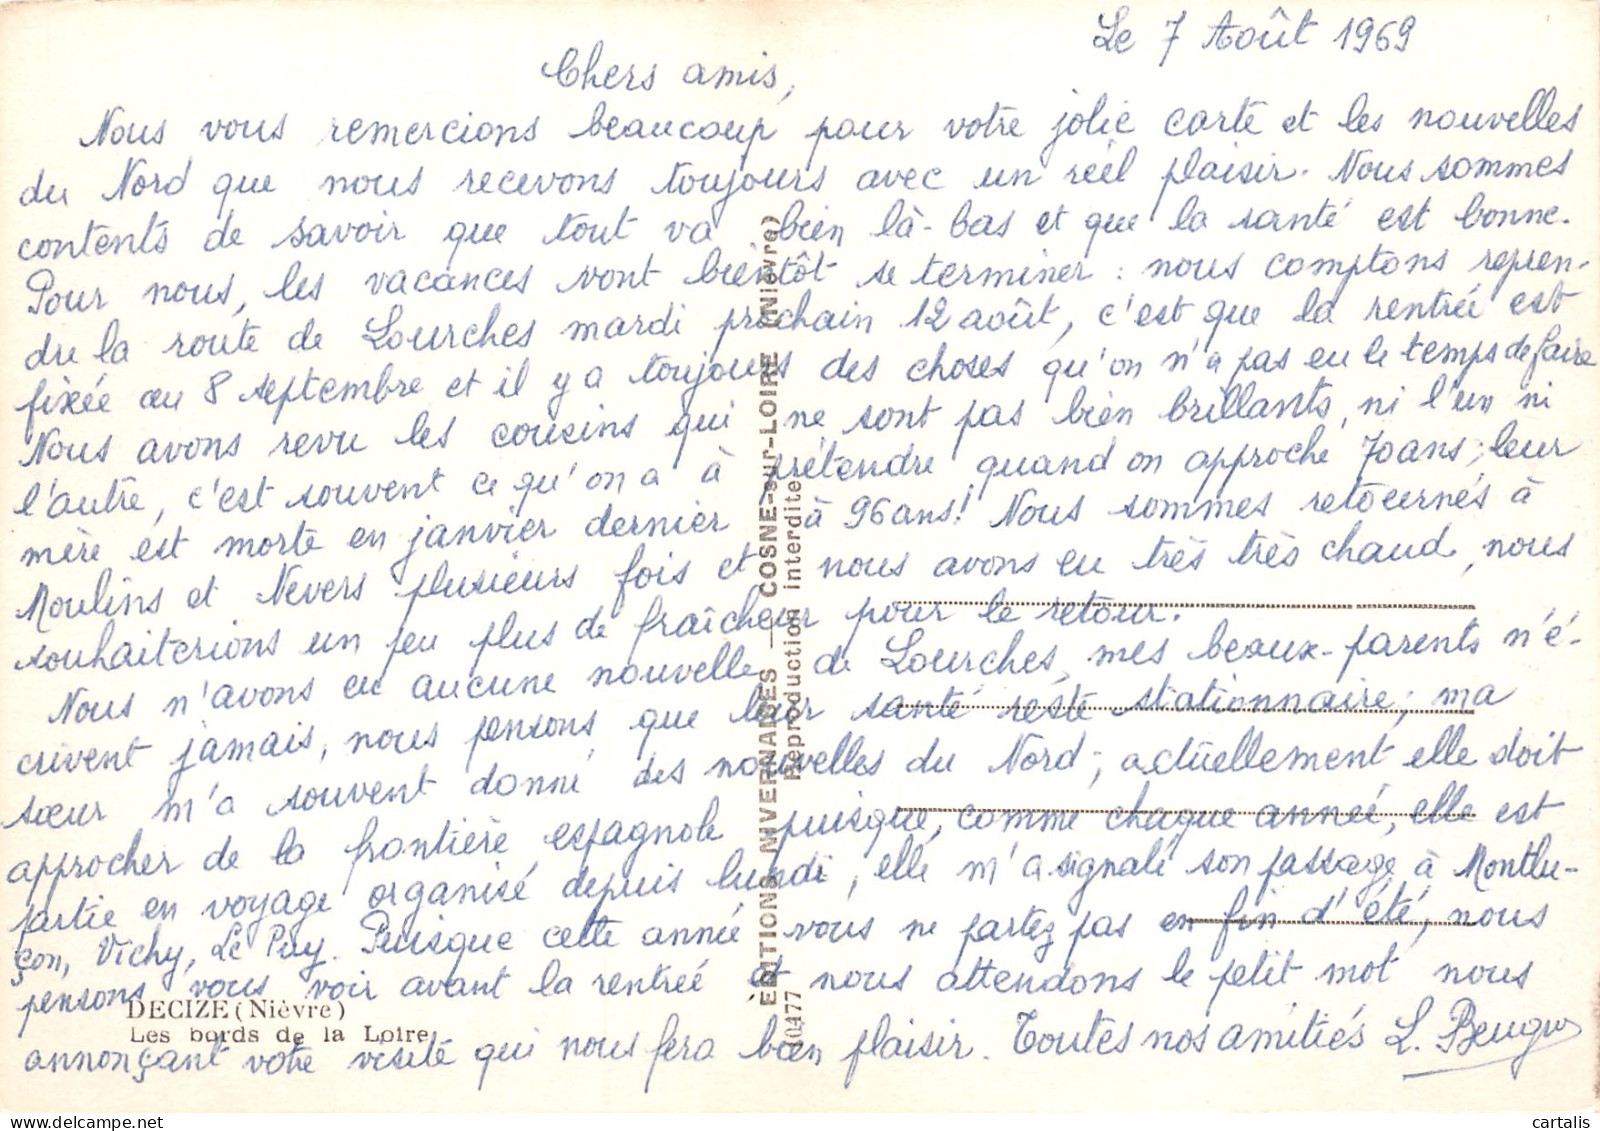 Le 7 Août 1969
Chers amis,
Nous vous remercions beaucoup pour votre jolie carte et les nouvelles
du Nord que nous recevons toujours avec un réel plaisir. Nous sommes
contents de savoir que tout va bien là-bas et que la santé est bonne.
Pour nous, les vacances vont bientôt se terminer : nous comptons repren-
dre la route de Lourches mardi prochain 12 août, c'est que la rentrée est
fixée au 8 septembre et il y a toujours des choses qu'on n'a pas eu le temps de faire
Nous avons revu les cousins qui ne sont pas bien brillants, ni l'un ni
l'autre, c'est souvent ce qu'on a à prétendre quand on approche 70 ans ; leur
mère est morte en janvier dernier à 96 ans ! Nous sommes retournés à
Moulins et Nevers plusieurs fois et nous avons eu très très chaud, nous
souhaiterions un peu plus de fraîcheur pour le retour.
Nous n'avons eu aucune nouvelle de Lourches, mes beaux-parents n'é-
crivent jamais, nous pensons que leur santé reste stationnaire ; ma
sœur m'a souvent donné des nouvelles du Nord ; actuellement elle doit
approcher de la frontière espagnole puisque, comme chaque année, elle est
partie en voyage organisé depuis lundi, elle m'a signalé son passage à Montlu-
çon, Vichy, Le Puy. Puisque cette année vous ne partez pas en fin d'été, nous
pensons vous voir avant la rentrée et nous attendons le petit mot nous
annonçant votre visite qui nous fera bien plaisir. Toutes nos amitiés L. Beugu
DECIZE (Nièvre)
Les bords de la Loire
ÉDITIONS NIVERNAISES — COSNE-sur-LOIRE (Nièvre)
10477 Reproduction interdite
cartalis
delcampe.net